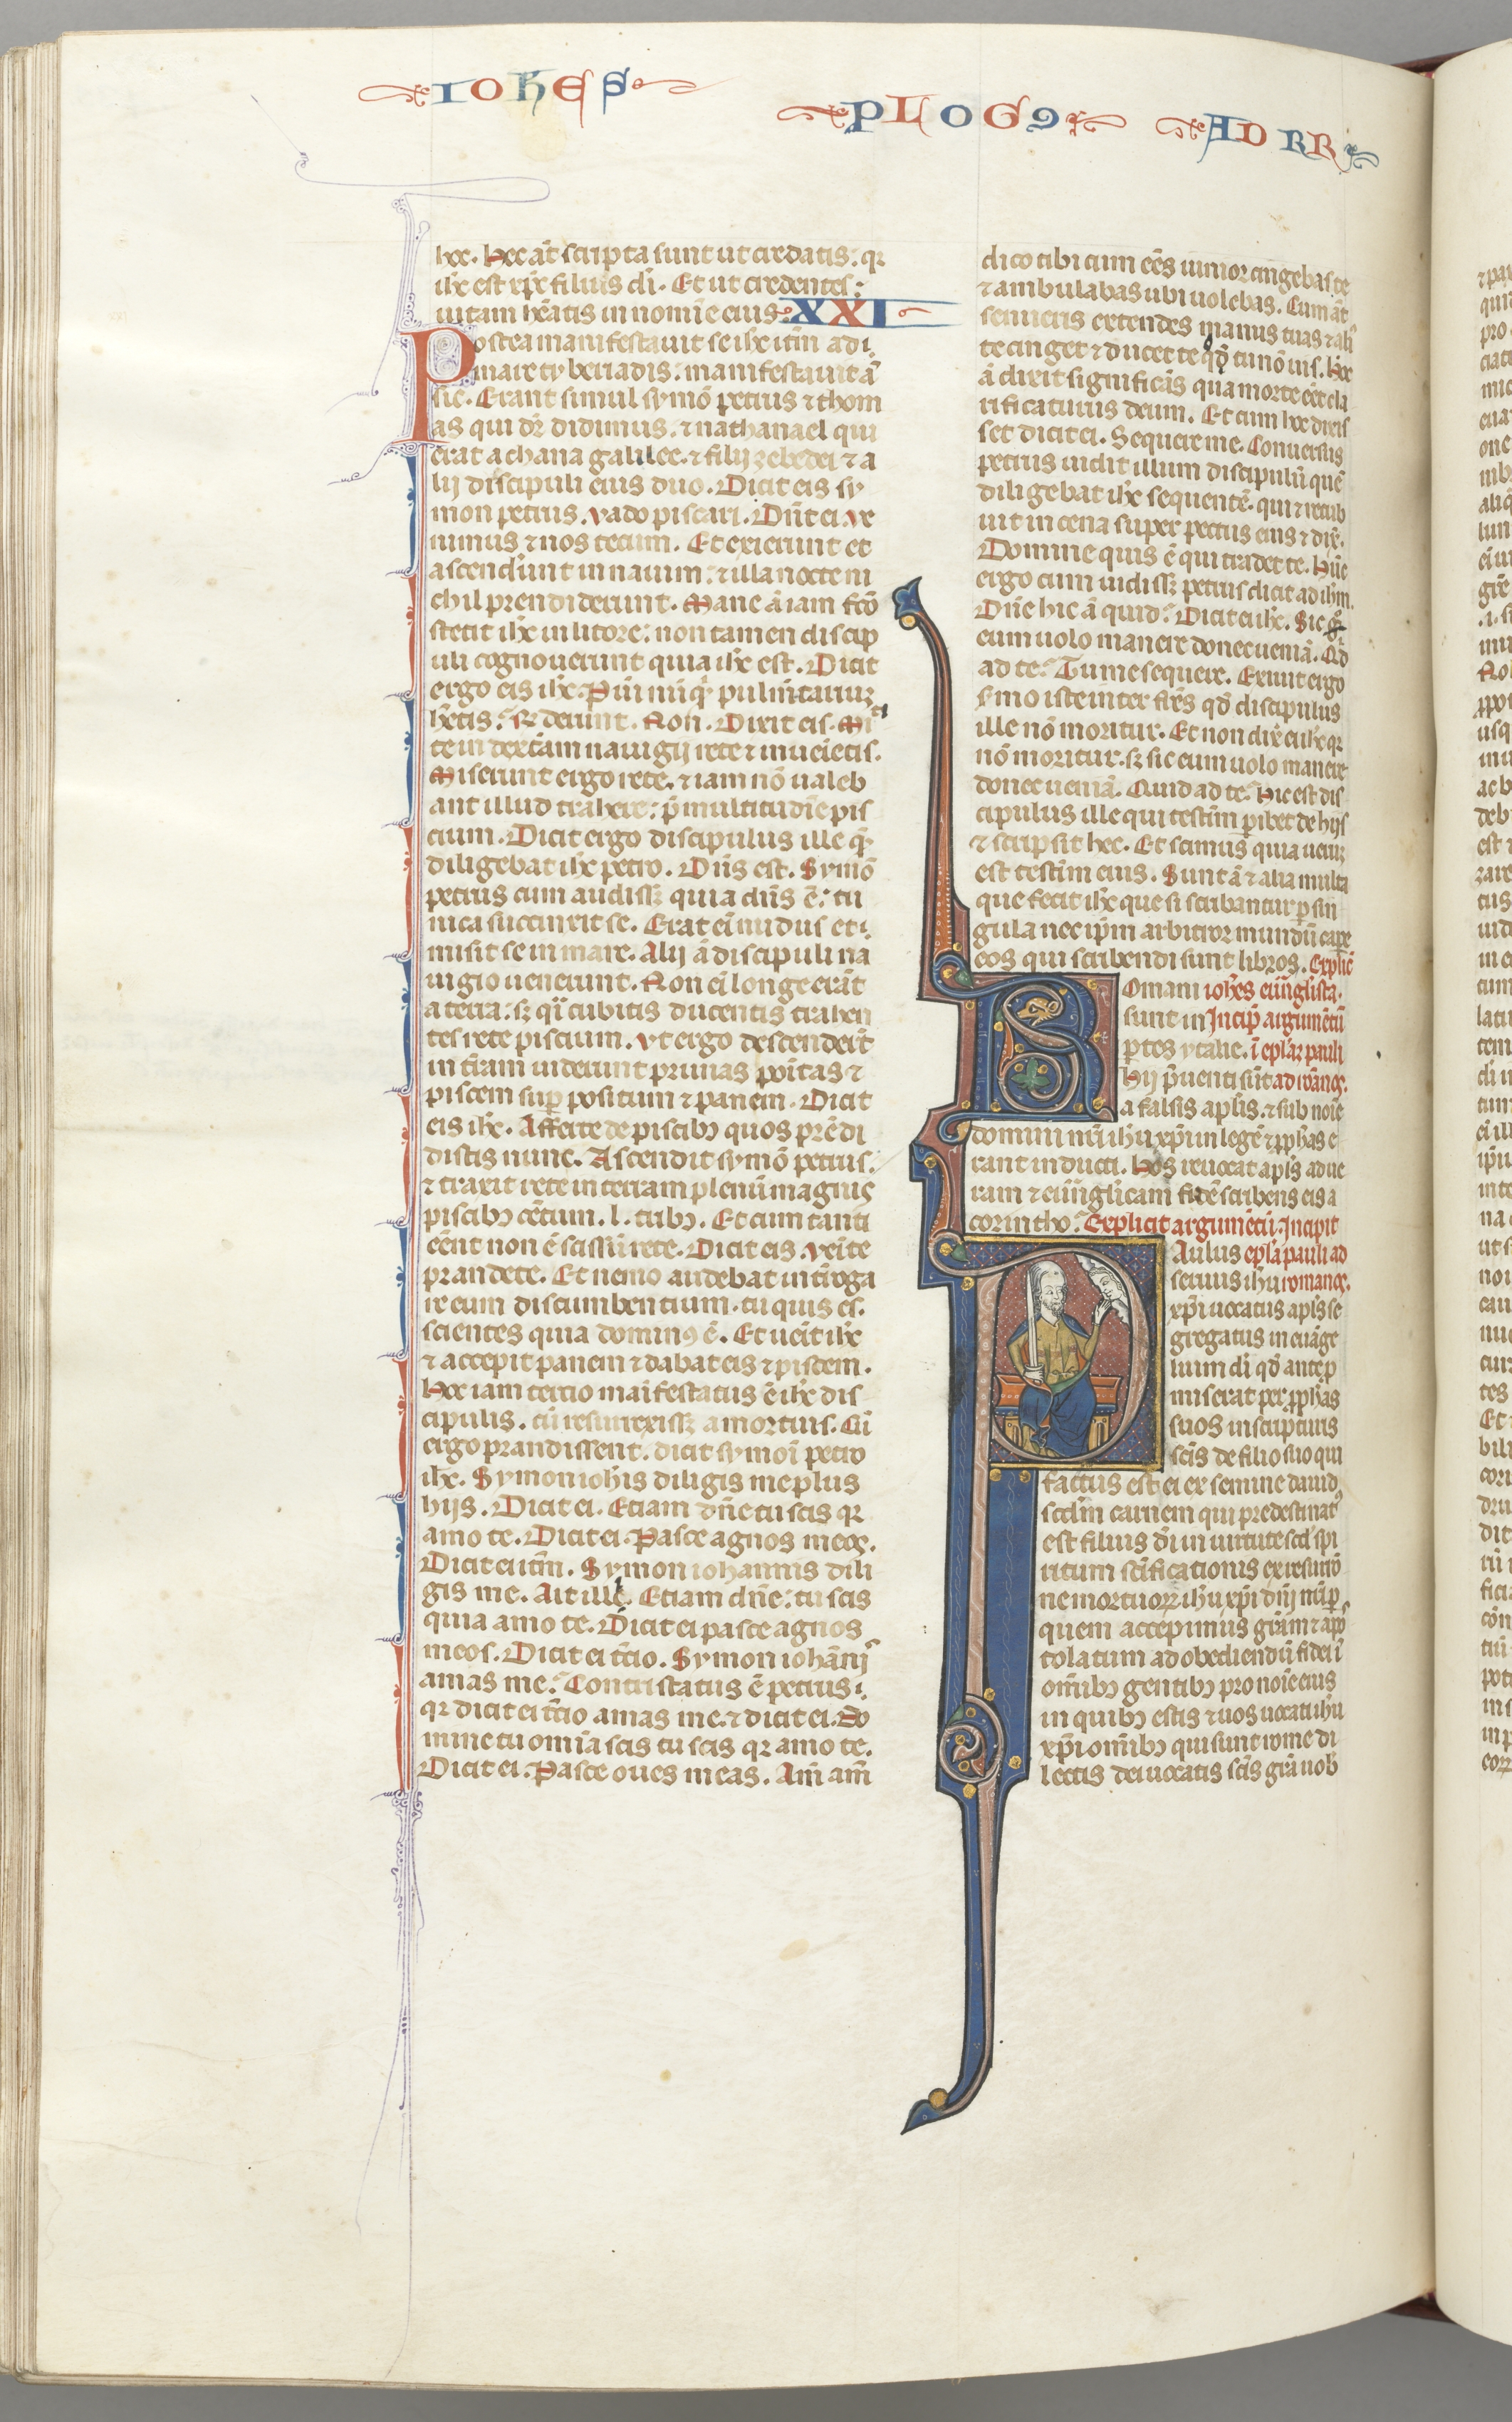 IOHES PLOGꝯ AD RR
hec. Hec aūt scripta sunt ut credatis: qꝛ
ihc est xpc filius di. Et ut credentes:
uitam hēatis in nomīe eius. XXI
Postea manifestauit se ihc itm̄ ad
mare tyberiadis: manifestauit ā
sic. Erant simul symō petrus ⁊ thom
as qui dr̄ didimus. ⁊ nathanael qui
erat a chana galilee. ⁊ filij zebedei ⁊ a
lij discipuli eius duo. Dicit eis sy
mon petrus. vado piscari. Dn̄t ei ve
nimus ⁊ nos tecum. Et exierunt et
ascendunt in nauim: ⁊ illa nocte ni
chil prendiderunt. Mane ā iam fc̄o
stetit ihc in litore: non tamen discip
uli cognouerunt quia ihc est. Dicit
ergo eis ihc. Pueri
hētis: Rn̄derunt. Non. Dixit eis. Mit
te in dextrām nauigij rete ⁊ inueietis.
Miserunt ergo rete. ⁊ iam nō ualeb
ant illud trahere: p̄ multitudīe pis
cium. Dicit ergo discipulus ille qm̄
diligebat ihc petro. Dn̄s est. Symō
petrus cum audissꝫ quia dn̄s ē: tu
nica succinxit se. Erat ei nudus et
misit se in mare. Alij ā discipuli na
uigio uenerunt. Non ei longe erāt
a terra: sꝫ qͣi cubitis ducentis trahen
tes rete piscium. vt ergo descenderūt
in tr̄am uiderunt prunas poitas ⁊
piscem sup̄ positum ⁊ panem. Dicit
eis ihc. Afferte de piscibꝫ quos prēdi
distis nunc. Ascendit symō petrus.
⁊ traxit rete in terram plenū magnis
piscibꝫ cētum. l. tribꝫ. Et cum tanti
eēnt non ē scissū rete. Dicit eis. venīte
prandete. Et nemo audebat int̄roga
re eum discumbentium. tu quis es.
scientes quia dominꝯ ē. Et uenīt ihc
⁊ accepit panem ⁊ dabat eis ⁊ piscem.
Hec iam tercio maīfestatus ē ihc dis
cipulis. cū resurrexissꝫ a mortuis. Cū
ergo prandissent. dicit symoī petro
ihc. Symon iohis diligis me plus
hijs. Dicit ei. Etiam dn̄e tu scis qꝛ
amo te. Dicit ei. Pasce agnos meos.
Dicit ei itm̄. Symon iohannis dili
gis me. Ait ille. Etiam dn̄e: tu scis
quia amo te. Dicit ei pasce agnos
meos. Dicit ei t̄cio. Symon iohānis
amas me: Contristatus ē petrus.
qꝛ dicit ei t̄cio amas me. ⁊ dicit ei. Do
mine tu omīa scis tu scis qꝛ amo te.
Dicit ei. Pasce oues meas. Am̄ am̄
dico tibi cum eēs iunior cingebas te
⁊ ambulabas ubi uolebas. Cum āt
senueris extendes manus tuas ⁊ ali
te cinget ⁊ ducet te qd̄ tu nō uis. Hec
ā dixit significās qua morte eēt cla
rificaturus deum. Et cum hec dixis
set dicit ei. Sequere me. Conuersus
petrus uidit illum discipulū quē
diligebat ihc sequentē. qui ⁊ recub
uit in cena super pectus eius ⁊ dix̄.
Domine quis ē qui tradet te. Hūc
ergo cum uidissꝫ petrus dicit ad ihm.
Dn̄e hic ā quid: Dicit ei ihc. Sic
eum uolo manere donec ueniā. Qd̄
ad te: Tu me sequere. Exiuit ergo
smo iste inter fr̄s qd̄ discipulus
ille nō moritur. Et non dix̄ ei ihc qꝛ
nō moritur. sꝫ sic eum uolo manere
donec ueniā. Quid ad te. Hic est dis
cipulus ille qui testīm p̱ibet de hijs
⁊ scripsit hec. Et scimus quia ueruꝫ
est testīm eius. Sunt ā ⁊ alia multa
que fecit ihc que si scribantur p̱ sin
gula nec ip̄m arbitror mundū cape
eos qui scribendi sunt libros. Explic̄
Romani ioh̄es euu̅glista.
sunt in Incip̄ argum̄etū
p̱tes ytalie. ī ep̄lar pauli
Hij p̄uenti sūt ad romanos.
a falsis ap̄lis. ⁊ sub noīe
domini nr̄i ihu xp̄i in legē ⁊ ꝓph̄as e
rant inducti. Hos reuocat ap̄ls ad ue
ram ⁊ euu̅glicam fidē scribens eis a
corintho. Explicit argum̄etū. Incipit
Paulus ep̄la pauli ad
seruus ihu romanos.
xp̄i uocatus ap̄ls se
gregatus in euāge
lium di qd̄ antep̱
miserat per ꝓph̄as
suos in scripturis
scīs de filio suo qui
factus est ei ex semine dauid
scd̄m carnem qui predestinatꝰ
est filius di in uirtute scd̄ spi
ritum scīficationis ex resurrō
ne mortuorꝝ ihu xp̄i dn̄i nr̄i p̱
quem accepimus grām ⁊ apos
tolatum ad obediendū fidei ī
omībꝫ gentibꝫ pro noīe eius
in quibꝫ estis ⁊ uos uocati ihu
xp̄i omībꝫ qui sunt rome di
lectis dei uocatis scīs grā uob